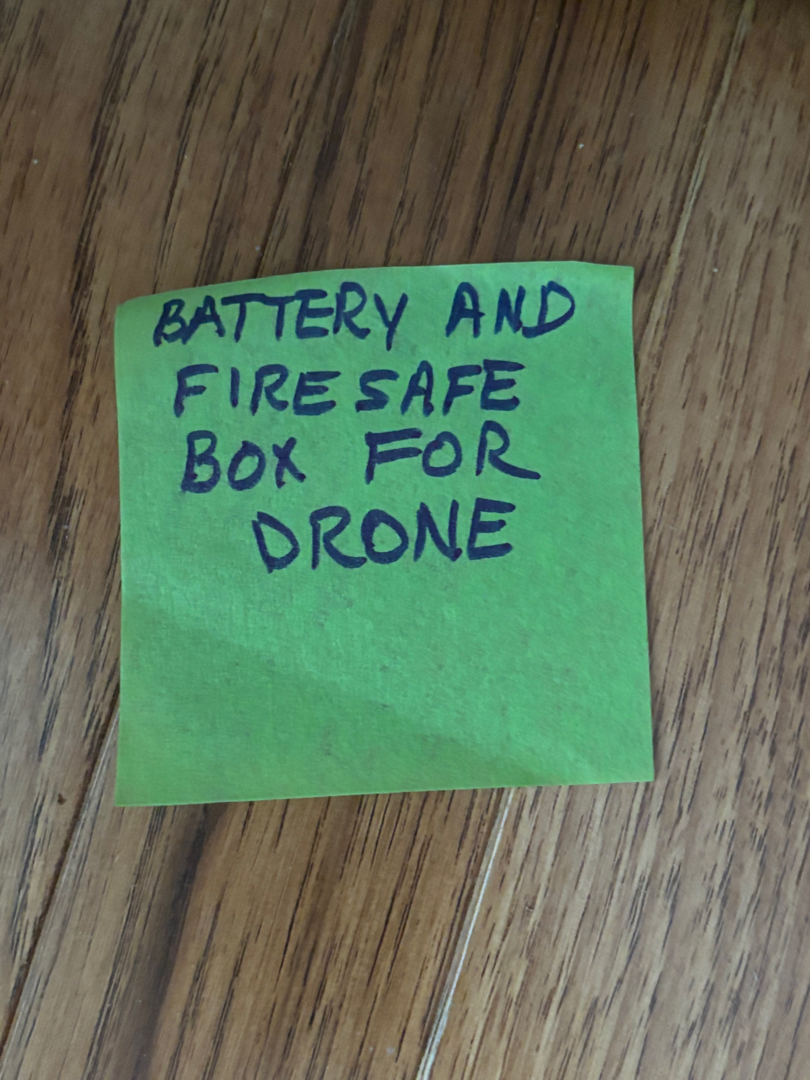 BATTERY AND
FIRESAFE
BOX FOR
DRONE